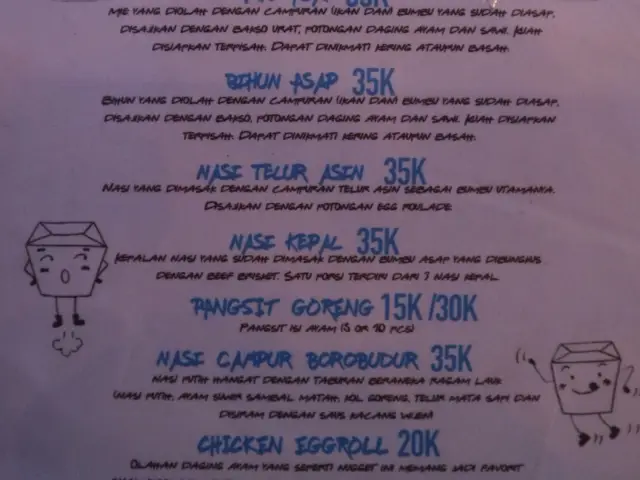 35K
MIE YANG DIOLAH DENGAN CAMPURAN (IKAN DAN) BUMBU YANG SUDAH DIASAP.
DISAJIKAN DENGAN BAKSO URAT, POTONGAN DAGING AYAM DAN SAWI. KUAH
DISIAPKAN TERPISAH. DAPAT DINIKMATI KERING ATAUPUN BASAH.
BIHUN ASAP 35K
BIHUN YANG DIOLAH DENGAN CAMPURAN (IKAN DAN) BUMBU YANG SUDAH DIASAP.
DISAJIKAN DENGAN BAKSO, POTONGAN DAGING AYAM DAN SAWI. KUAH DISIAPKAN
TERPISAH. DAPAT DINIKMATI KERING ATAUPUN BASAH.
NASI TELUR ASIN 35K
NASI YANG DIMASAK DENGAN CAMPURAN TELUR ASIN SEBAGAI BUMBU UTAMANYA.
DISAJIKAN DENGAN POTONGAN EGG ROULADE
NASI KEPAL 35K
KEPALAN NASI YANG SUDAH DIMASAK DENGAN BUMBU ASAP YANG DIBUNGKUS
DENGAN BEEF BRISKET. SATU PORSI TERDIRI DARI 3 NASI KEPAL
PANGSIT GORENG 15K /30K
PANGSIT ISI AYAM (5 OR 10 PCS)
NASI CAMPUR BOROBUDUR 35K
NASI PUTIH HANGAT DENGAN TABURAN BERANEKA RAGAM LAUK
(NASI PUTIH, AYAM SUWIR SAMBAL MATAH, KOL GORENG, TELUR MATA SAPI DAN
DISIRAM DENGAN SAUS KACANG WIJEN)
CHICKEN EGGROLL 20K
OLAHAN DAGING AYAM YANG SEPERTI NUGGET INI MEMANG JADI FAVORIT